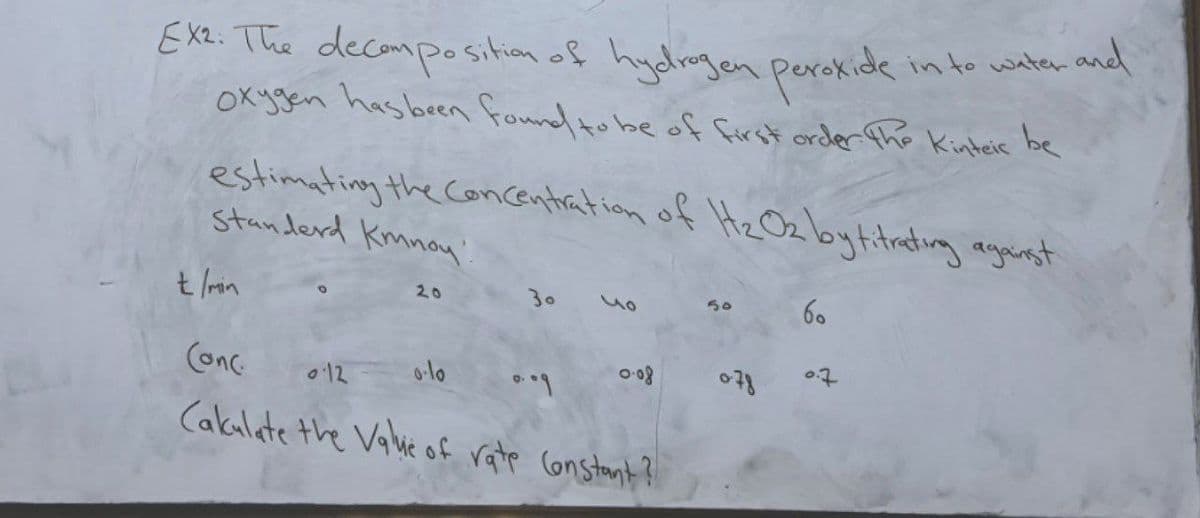 EX2: The decomposition of hydrogen peroxide in to water and
oxygen hasbeen found to be of first order. the Kinteic be
estimating the Concentration of H2O2 by titrating against
Standerd Kmnoy:
t/min 0 20 30 40 50 60
Conc. 0.12 0.10 0.09 0.08 0.78 0.7
Calculate the Value of rate Constant?